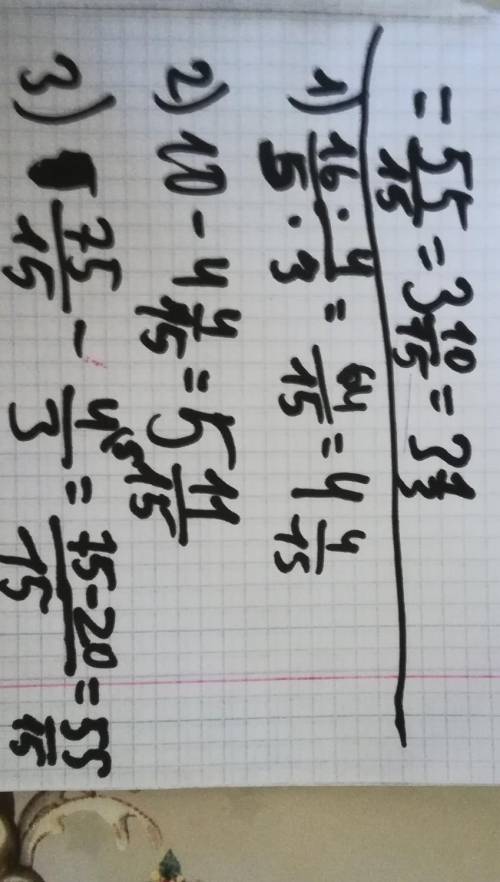 = 55/15 = 3 10/15 = 3 1/3
1) 16 · 4 / 5 · 3 = 64/15 = 4 4/15
2) 10 - 4 4/15 = 5 11/15
3) 75/15 - 4/3 \5 = 75-20/15 = 55/15